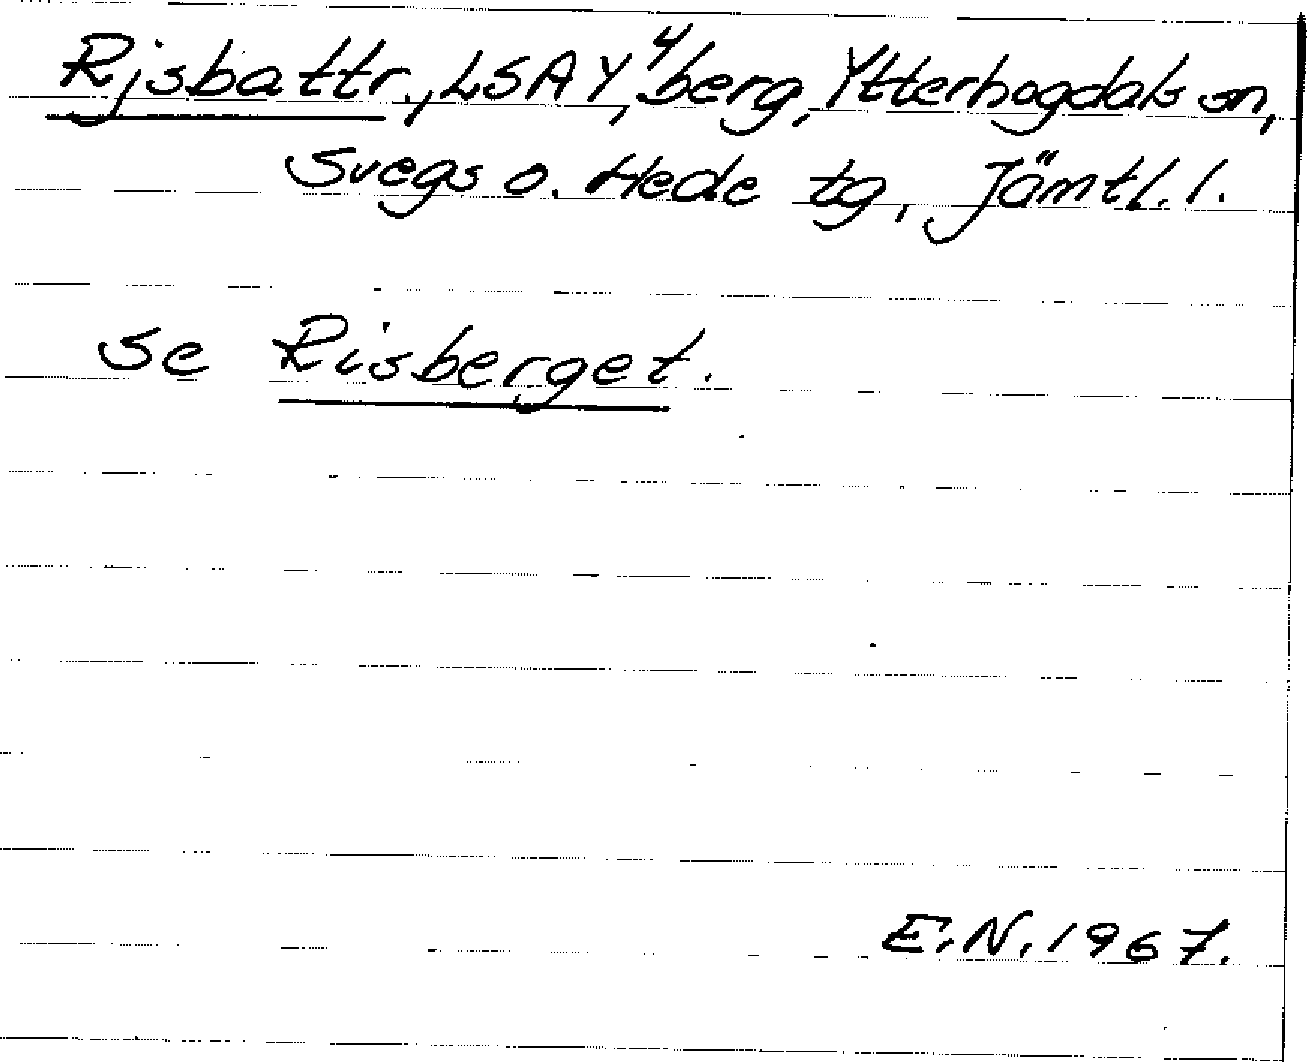 Rjsbattr., LSAY, 4 berg, Ytterhogdals sn,
Svegs o. Hede tg, Jämtl. l.
se Risberget.
E.N. 1967.